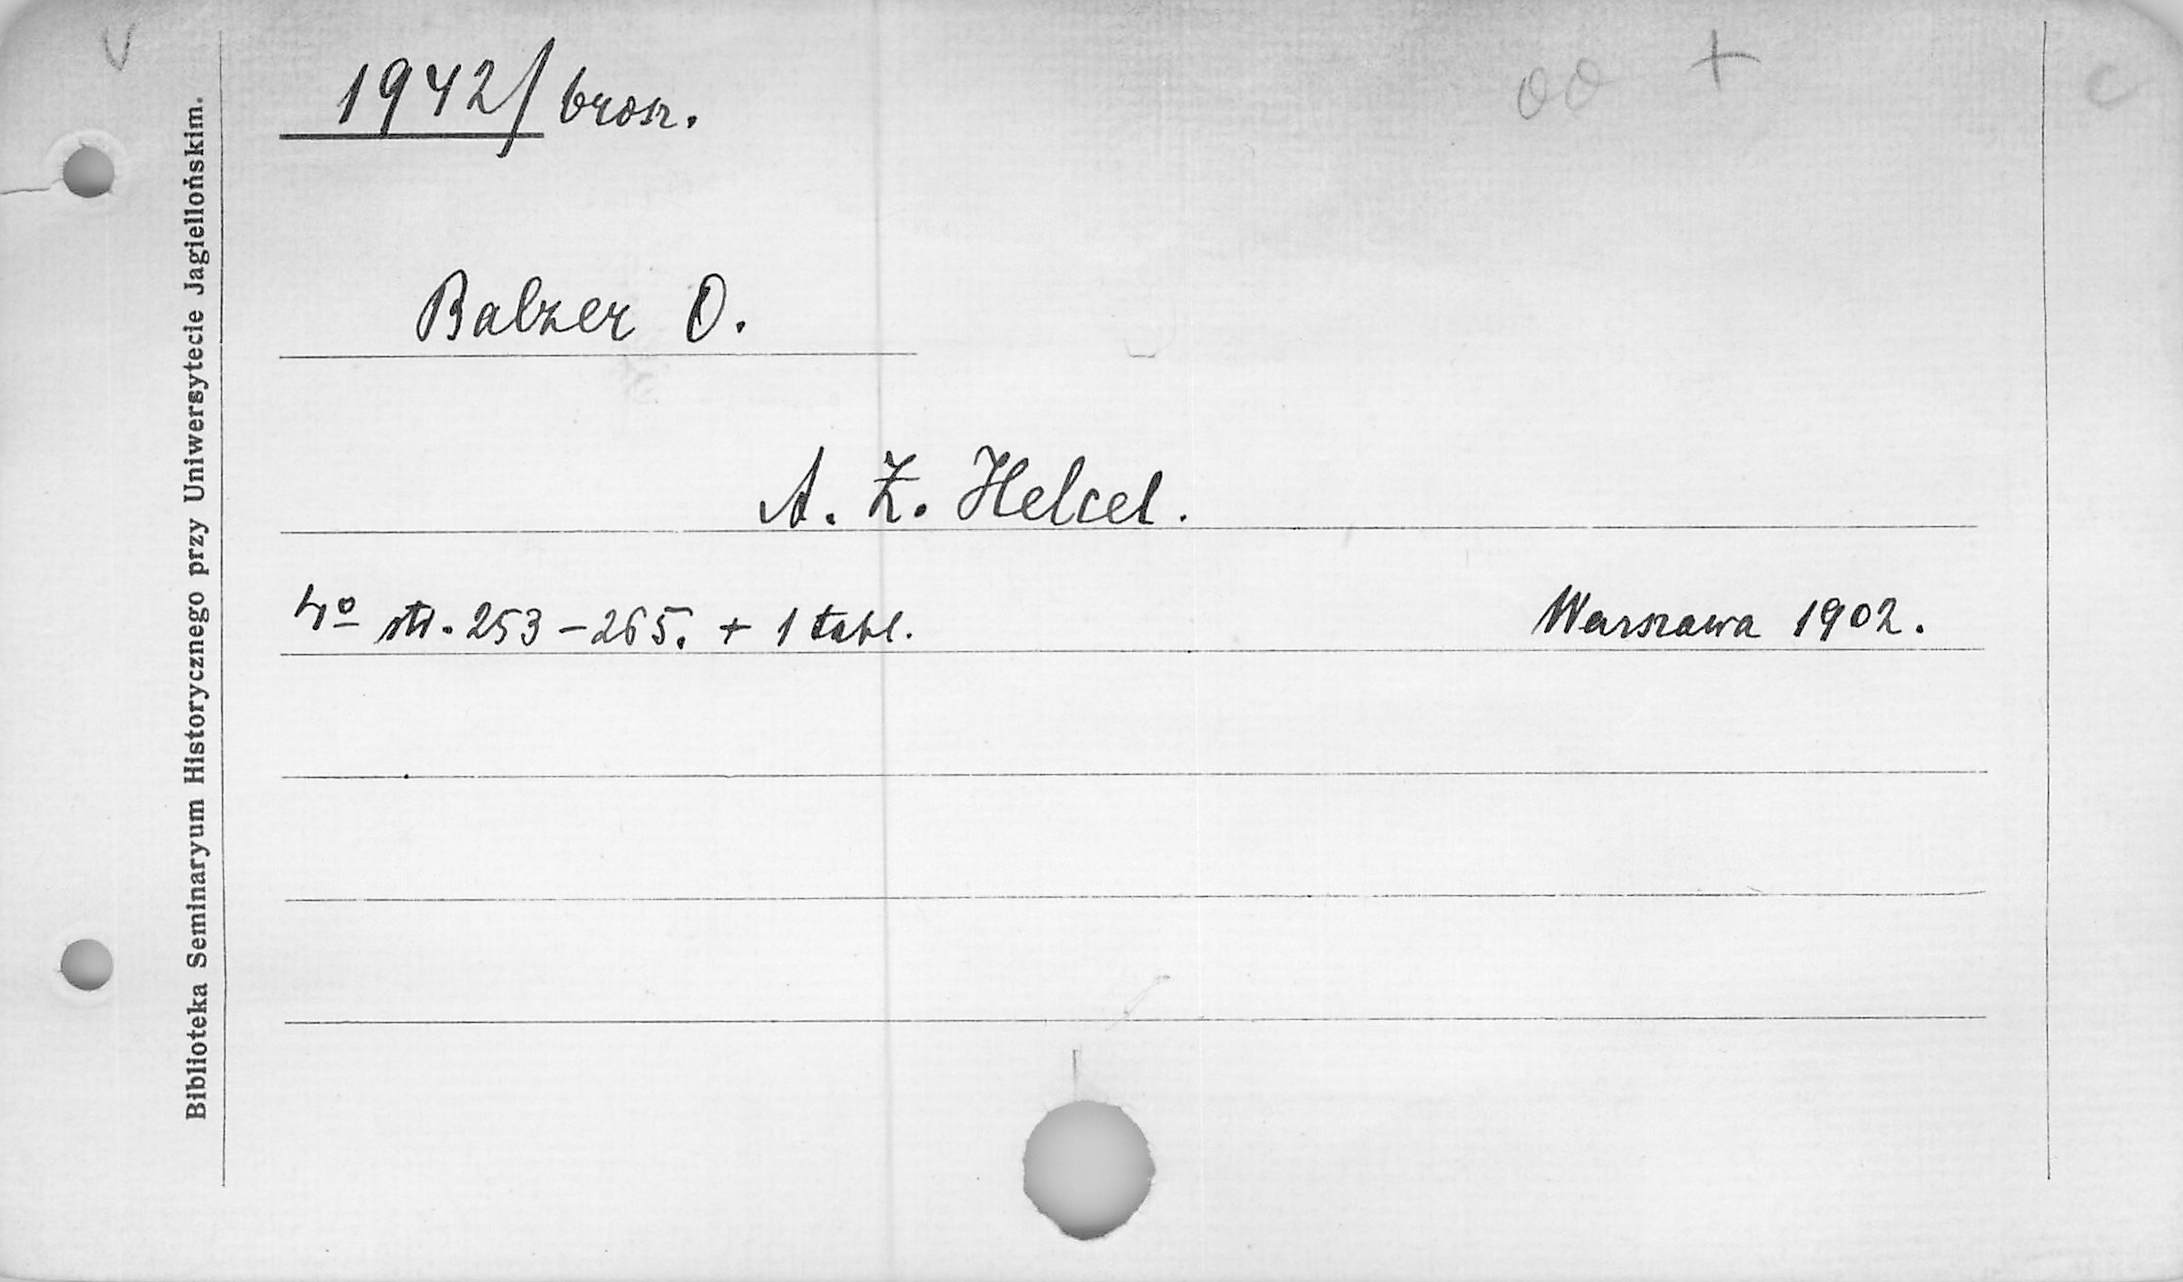 1942/brosz.
Balzer O.
A. Z. Helcel.
4º str. 253-265. + 1 tabl.
Warszawa 1902.
Biblioteka Seminaryum Historycznego przy Uniwersytecie Jagiellońskim.